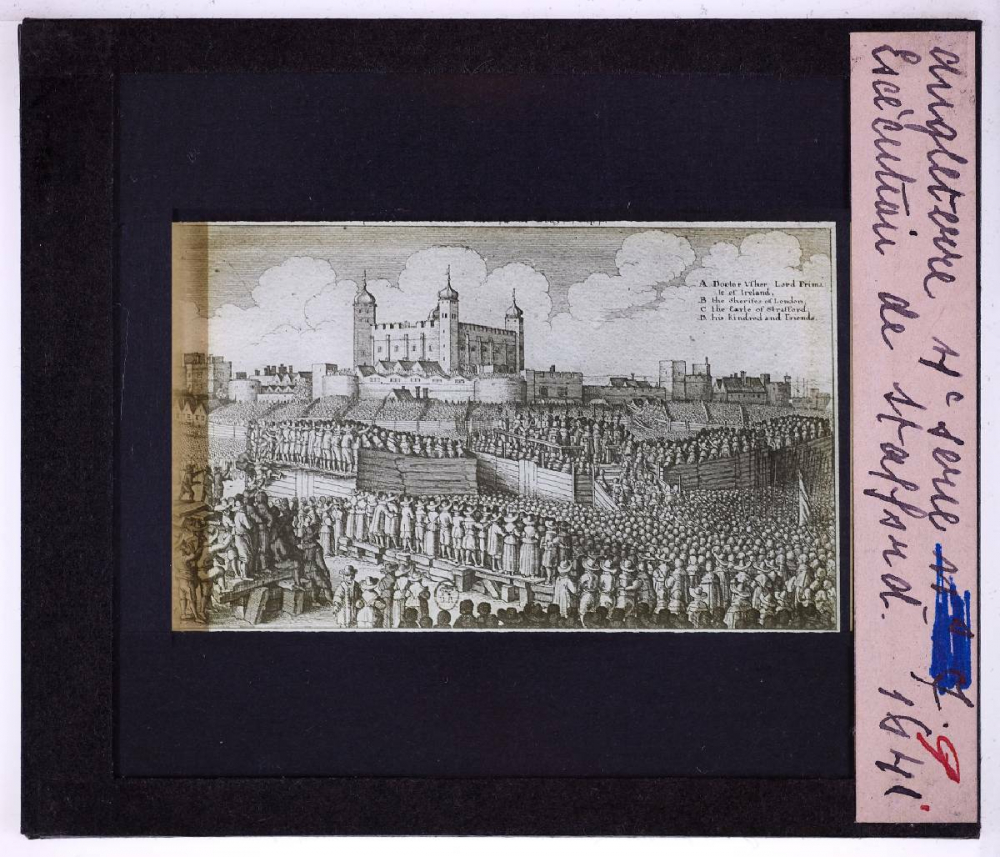 A Doctor Usher Lord Prima
te of Ireland,
B the Sherifes of London,
C the Earle of Strafford,
D his kindred and Friends.
Angleterre 4e serie
Exécution de Stafford. 1641